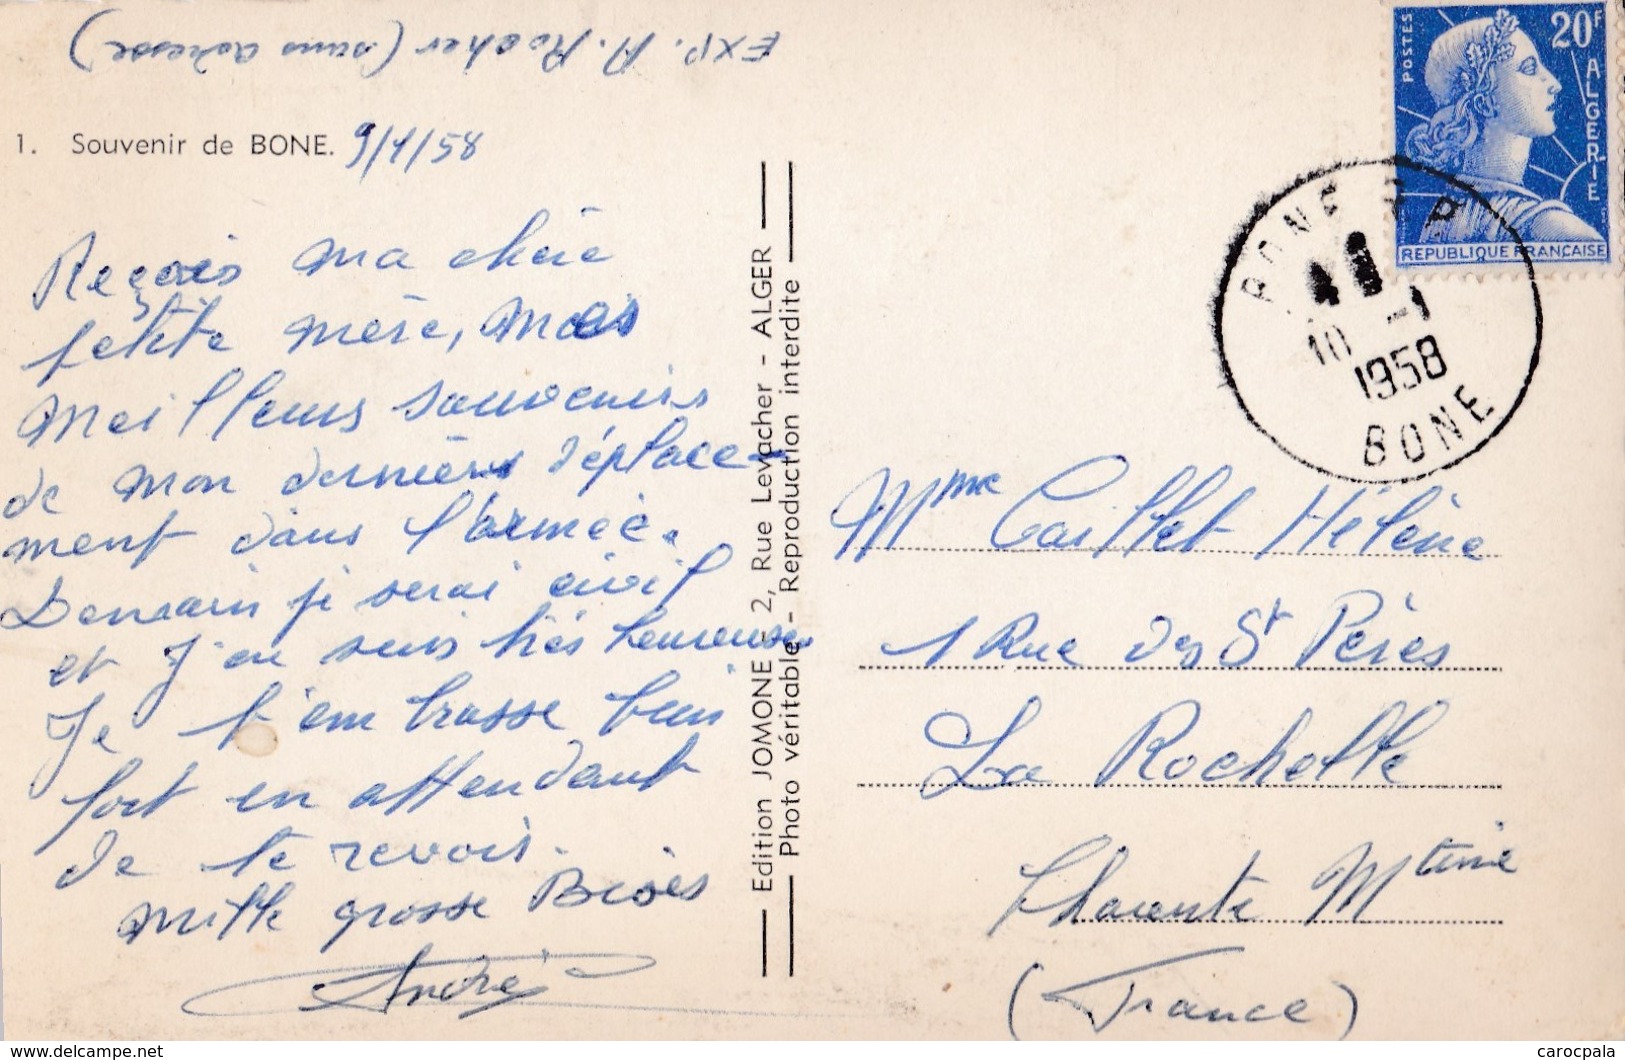 EXP. A. Rocher (sans adresse)
1. Souvenir de BONE. 9/1/58
Reçois ma chère
petite mère, mes
meilleurs souvenirs
de mon derniers déplace-
ment dans l'armée.
Demain je serai civil
et j'en suis très heureuse
Je t'embrasse bien
fort en attendant
de te revoir.
mille grosse Bises
André
Edition JOMONE - 2, Rue Levacher - ALGER
Photo véritable - Reproduction interdite
POSTES
20F
ALGERIE
REPUBLIQUE FRANÇAISE
BONE R.P.
10 -1
1958
BONE
Mme Caillet Hélène
1 Rue des St Pères
La Rochelle
Charente Mtime
(France)
carocpala
www.delcampe.net